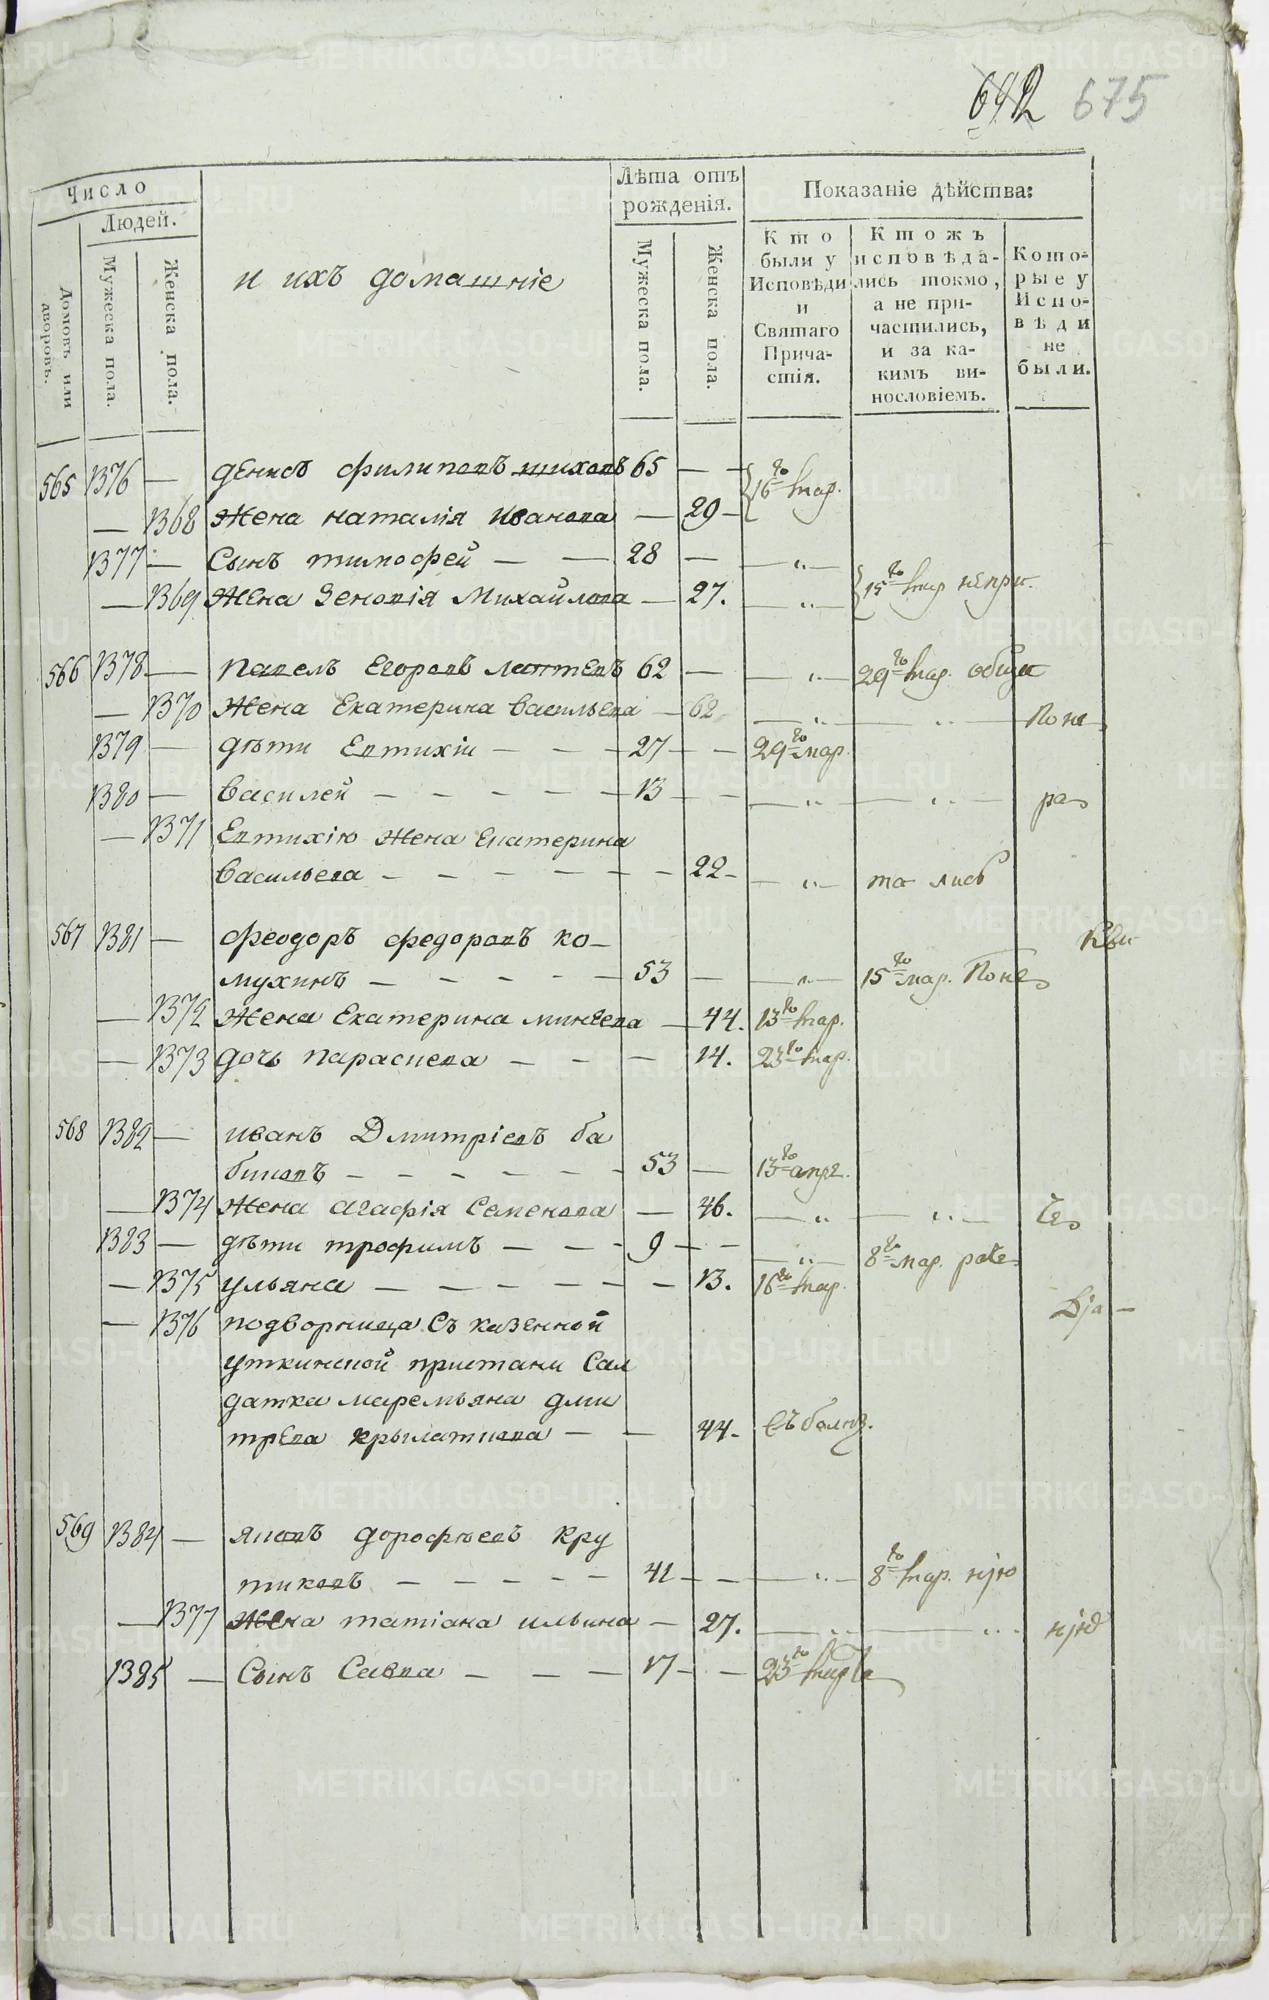 692 675
Число
Людей.
Домовъ или дворовъ.
Мужеска пола.
Женска пола.
и ихъ домашніе
Лѣта отъ
рожденія.
Мужеска пола.
Женска пола.
Показаніе дѣйства:
Кто
были у
Исповѣди
и
Святаго
Прича-
стія.
Ктожъ
исповѣда-
лись токмо,
а не при-
частились,
и за ка-
кимъ ви-
нословіемъ.
Кото-
рые у
Испо-
вѣди
не
были.
565 1376 — денисъ филиповъ шиховъ 65 — — 16го мар.
— 1368 Жена наталія иванова — 29 —
1377 — Сынъ тимофей — — 28 — — „ —
— 1369 Жена Зеновія Михайлова — 27. — „ — 15го мар непри.
566 1378 — павелъ Егоровъ лаптевъ 62 — — „ — 29го мар.
— 1370 Жена Екатерина васильева — 62 — „ — „ —
1379 — дѣти Евтихіи — — — 27 — — 29го мар.
1380 — василей — — — — — 13 — — — „ — „ —
— 1371 Евтихію жена екатерина
васильева — — — — — — 22 — — „ —
567 1381 — феодоръ федоровъ ко-
мухинъ — — — — 53 — — „ — 15го мар.
— 1372 Жена Екатерина минѣева — 44. 13го мар.
— 1373 дочь парасиева — — — 14. 23го мар.
568 1382 — иванъ Дмитріевъ ба
биновъ — — — — — — 53 — 13го апре.
— 1374 Жена агафія Семенова — 46. — „ — „ —
1383 — дѣти трофимъ — — — 9 — — — „ — 8го мар.
— 1375 ульяна — — — — — — 13. 16го мар.
— 1376 подворница съ казенной
уткинской пристани Сал
датка маремьяна дми
трева крылаткова — — 44 —
569 1384 — яковъ дорофѣевъ кру
тиковъ — — — — — 41 — — — „ — 8го мар.
— 1377 жена татіана ильина — 27. — „ — „
1385 — Сынъ Савва — — — 17 — — 23го марта